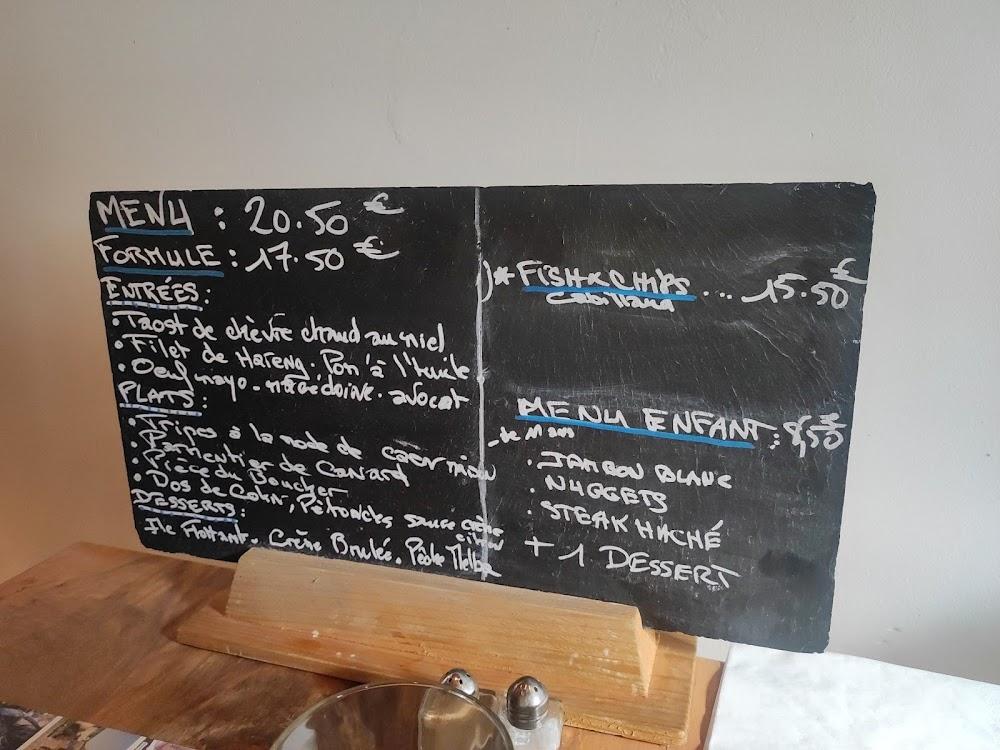 MENU : 20.50 €
FORMULE : 17.50 €
ENTRÉES :
• Taost de chèvre chaud au miel
• Filet de Hareng. Pom' à l'huile
• Oeuf mayo - macédoine. avocat
PLATS :
• Tripes à la mode de caen maison
• Parmentier de Canard
• Pièce du Boucher
• Dos de Colin, Pétoncles sauce crème citron
DESSERTS :
Ile Flottante. Crème Brulée. Pêche Melba
* FISH & CHIPS ... 15.50 €
Cabillaud
MENU ENFANT : 8,50 €
- de 11 ans
• JAMBON BLANC
• NUGGETS
• STEAK HACHÉ
+ 1 DESSERT